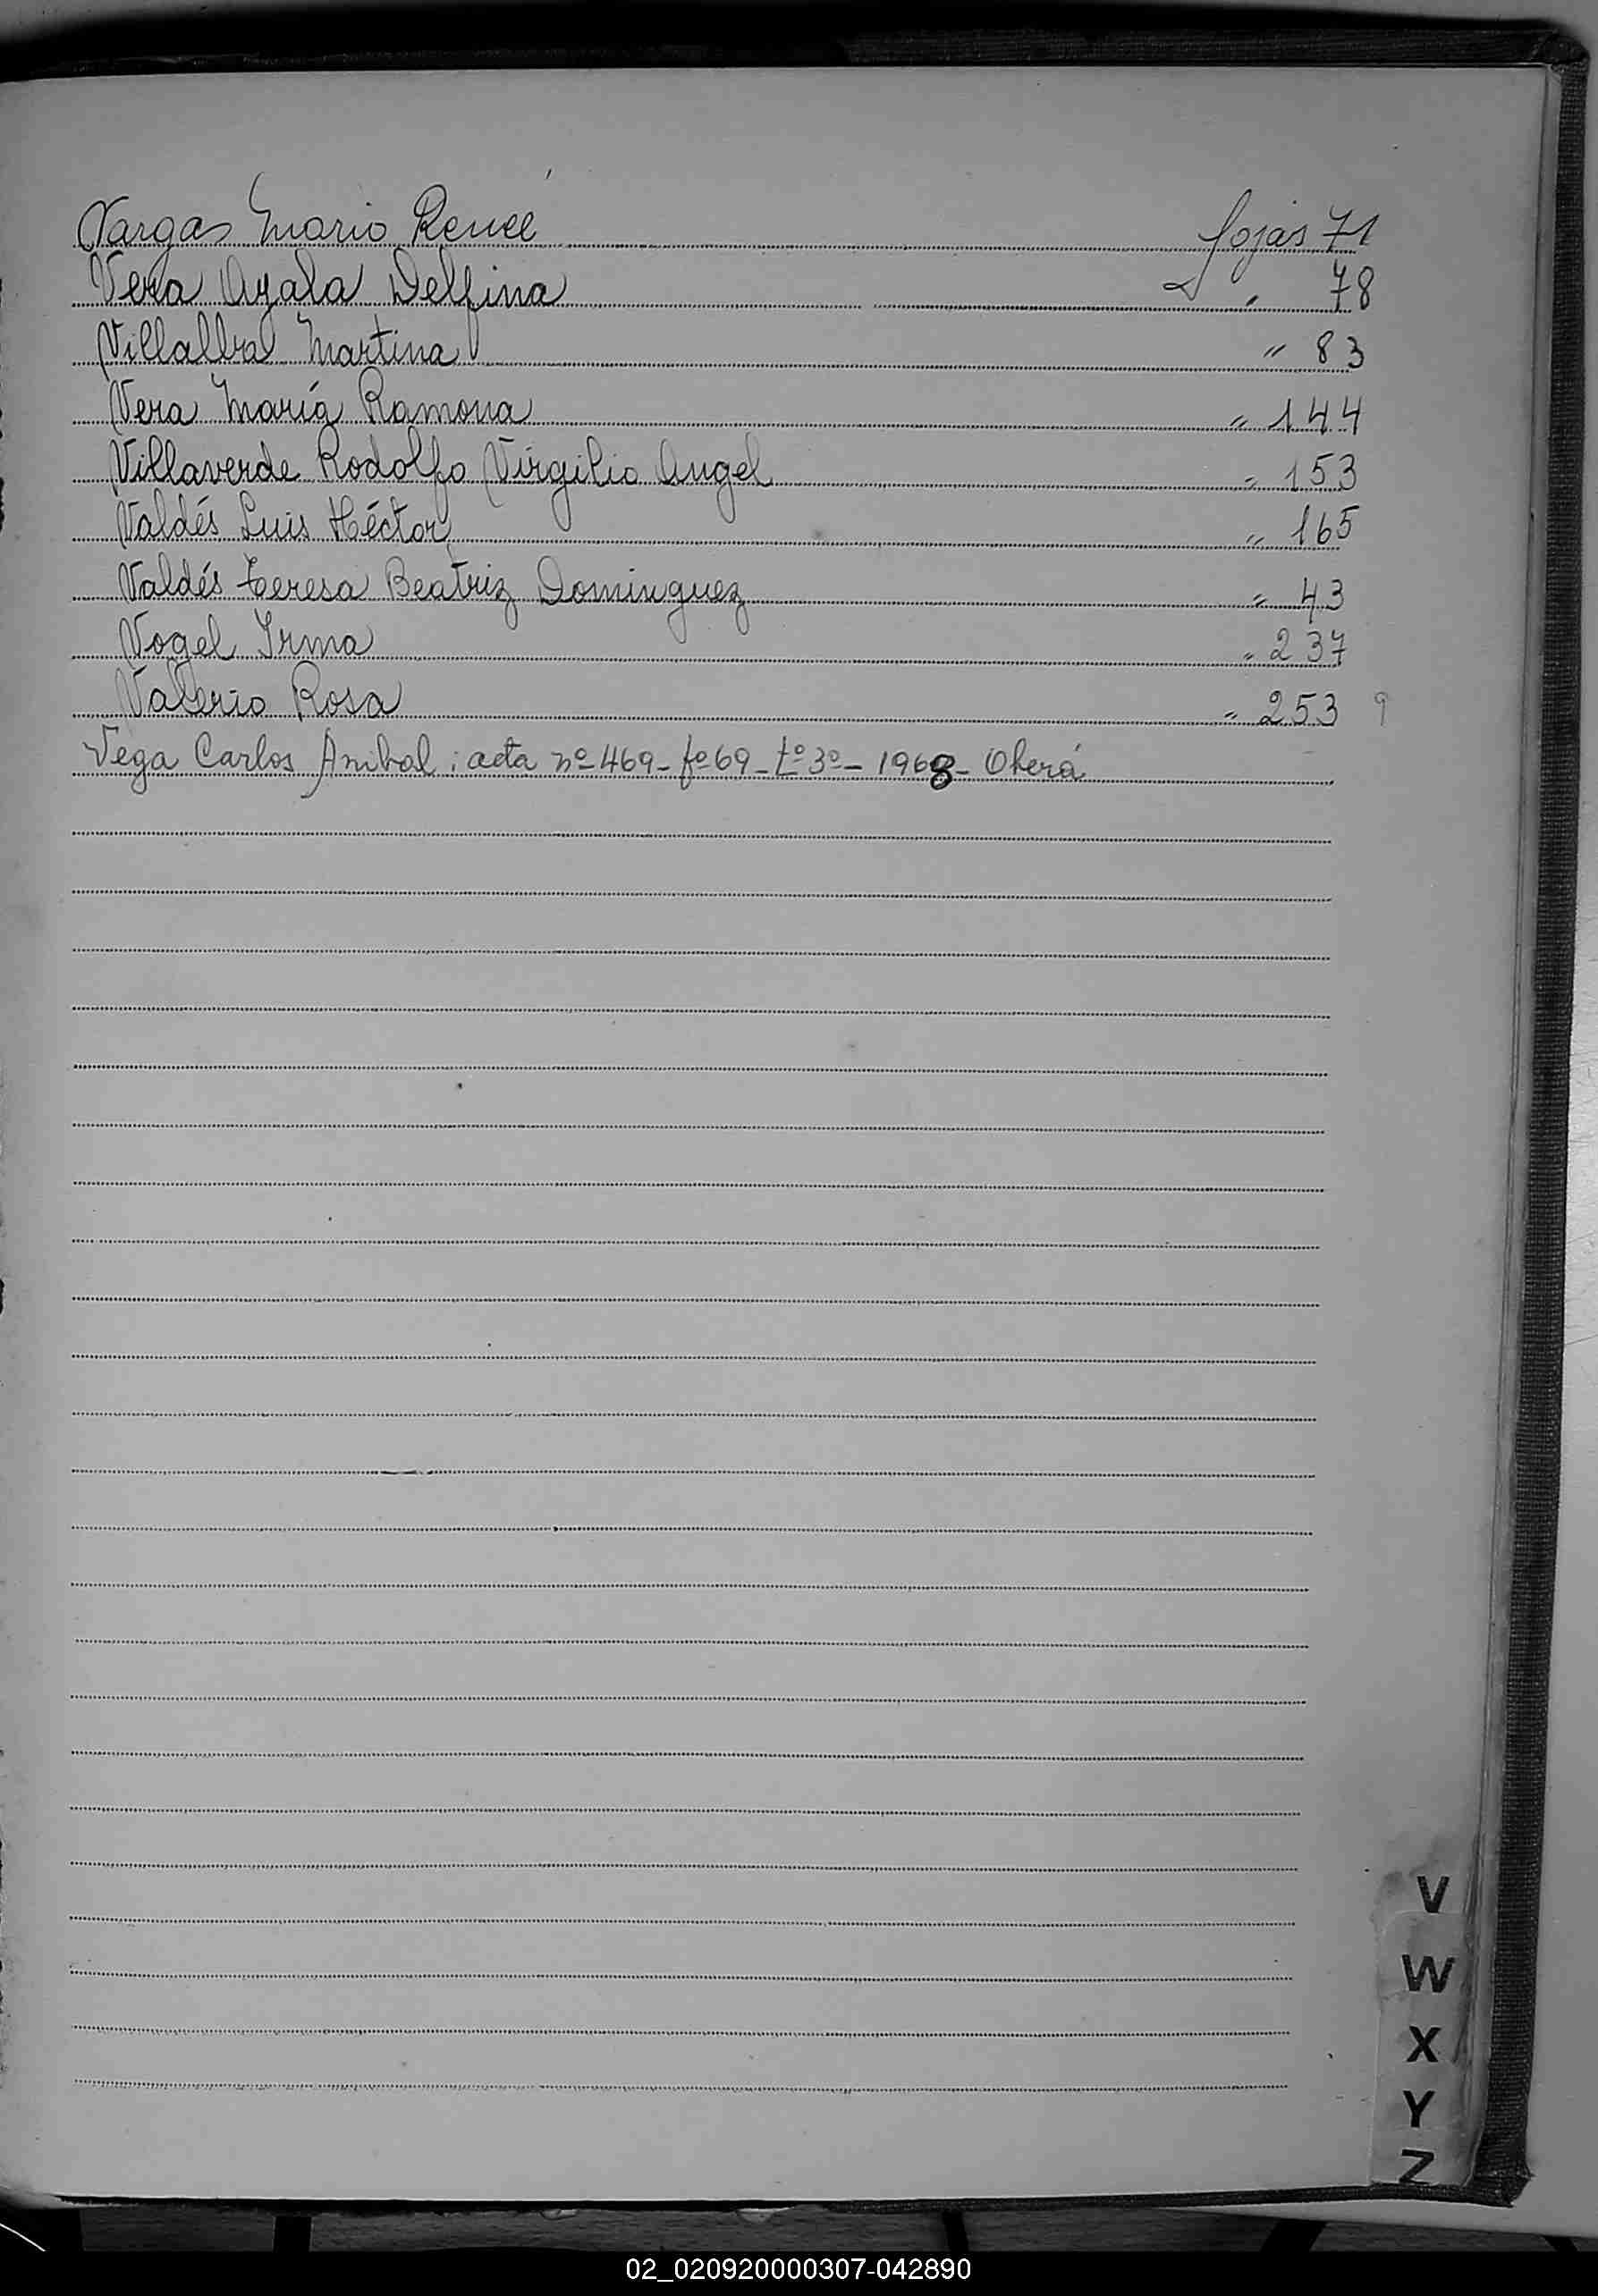 Vargas Mario Reneé fojas 71
Vera Ayala Delfina " 78
Villalba Martina " 83
Vera María Ramona " 144
Villaverde Rodolfo Virgilio Angel " 153
Valdés Luis Héctor " 165
Valdés Teresa Beatriz Dominguez " 43
Vogel Irma " 237
Valerio Rosa " 253 9
Vega Carlos Anibal : acta nº 469 - fº 69 - tº 3º - 1968 - Oberá
V
W
X
Y
Z
02_020920000307-042890